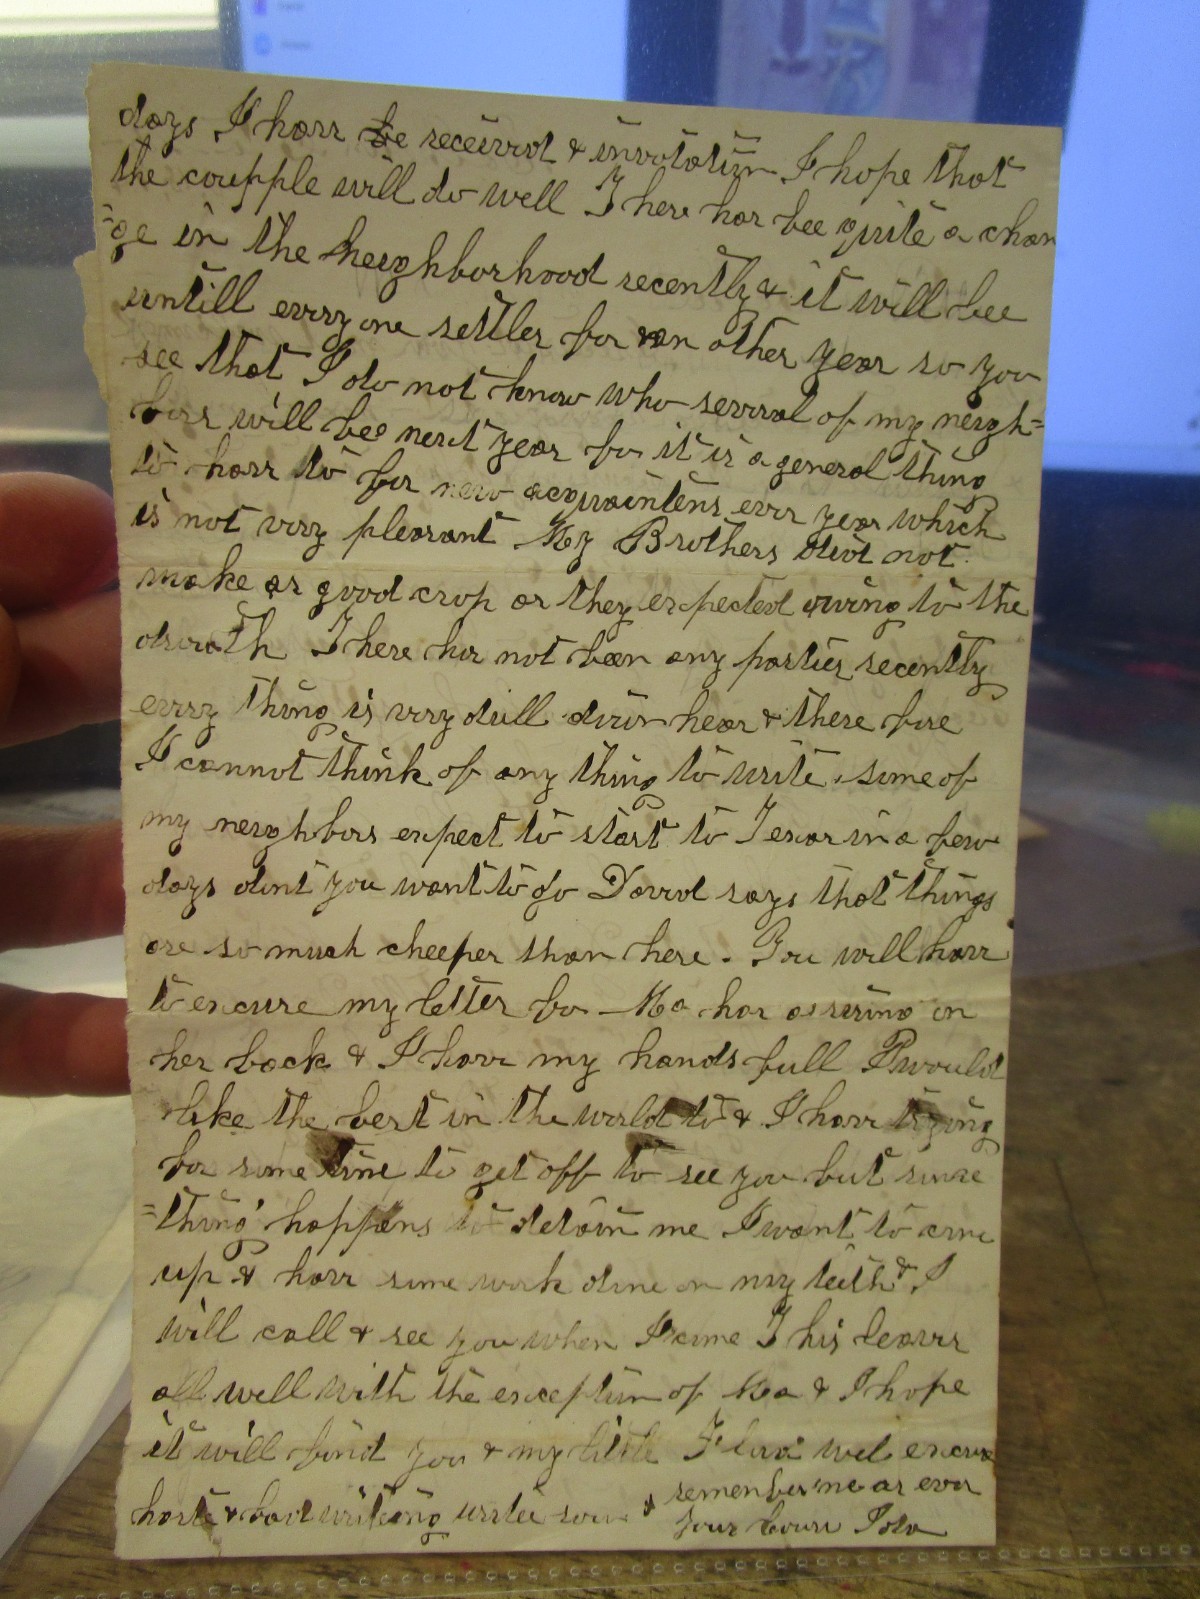 days I have be receivd & invotation I hope that
the coupple will do well There has bee quite a chan
=ge in the neighborhood recently & it will bee
untill every one settles for an other year so you
see that I do not know who several of my neigh=
bors will bee next year for it is a general thing
to have to for new acquaintens ever year which
is not very pleasant My Brothers did not
make as good crop as they expected owing to the
drouth There has not been any parties recently
every thing is very dull down hear & there fore
I cannot think of any thing to write some of
my neighbors expect to start to Texas in a few
days dont you want to go David says that things
are so much cheeper than here. You will have
to excuse my letter for Ma has a rising on
her back & I have my hands full I would
like the best in the world to & I have trying
for some time to get off to see you but some
=thing happens to detain me I want to come
up & have some work done on my teeth & I
will call & see you when I come This leaves
all well with the exception of Ma & I hope
it will find you & my little Flora well excuse
haste & bad writing write soon & remember me as ever
your Cousin Ida